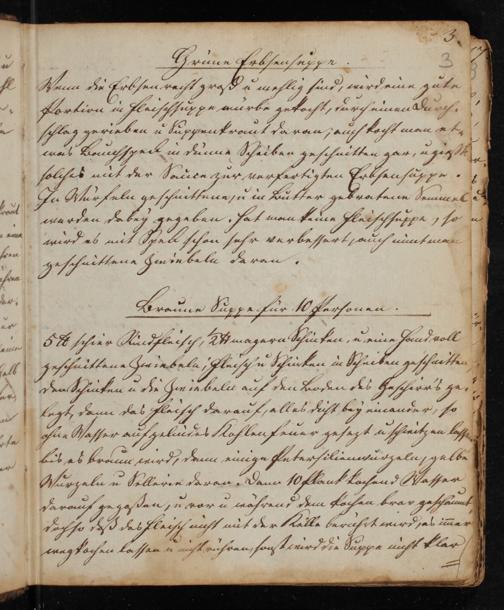 3.
3
Grüne Erbsensuppe.
Wenn die Erbsen recht groß u mehlig sind, wird eine gute
Portion in Fleischsuppe mürbe gekocht, durch einen Durch-
schlag gerieben u Suppenkraut daran; auch kocht man et-
was Bauchspeck in dünne Scheiben geschnitten gar, u gießt
solches mit der Sauce zur verfertigten Erbsensuppe.
In Würfeln geschnittene, u in Butter gebratene Semmel
werden dabey gegeben. Hat man keine Fleischsuppe, so
wird es mit Speck schon sehr verbessert, auch nimt man
geschnittene Zwiebeln daran.
Braune Suppe für 10 Personen.
5 ℔ schier Rindfleisch, 1/2 ℔ magern Schinken, u eine Handvoll
geschnittene Zwiebeln, Fleisch u Schinken in Scheiben geschnitten
den Schinken u die Zwiebeln auf den Boden des Geschirrs ge-
legt, dann das Fleisch darauf, alles dicht bey einander, so
ohne Wasser auf gelindes Kohlenfeuer gesezt u schwitzen lassen
bis es braun wird, dann einige Petersilienwurzeln, gelbe
Wurzeln u Sellerie daran. Dann 10 kochend Wasser
darauf gegossen, u vor u während dem Kochen brav geschäumt
doch so daß das Fleisch nicht mit der Kelle berührt wird, es immer
wegkochen lassen u nicht rühren, sonst wird die Suppe nicht klar